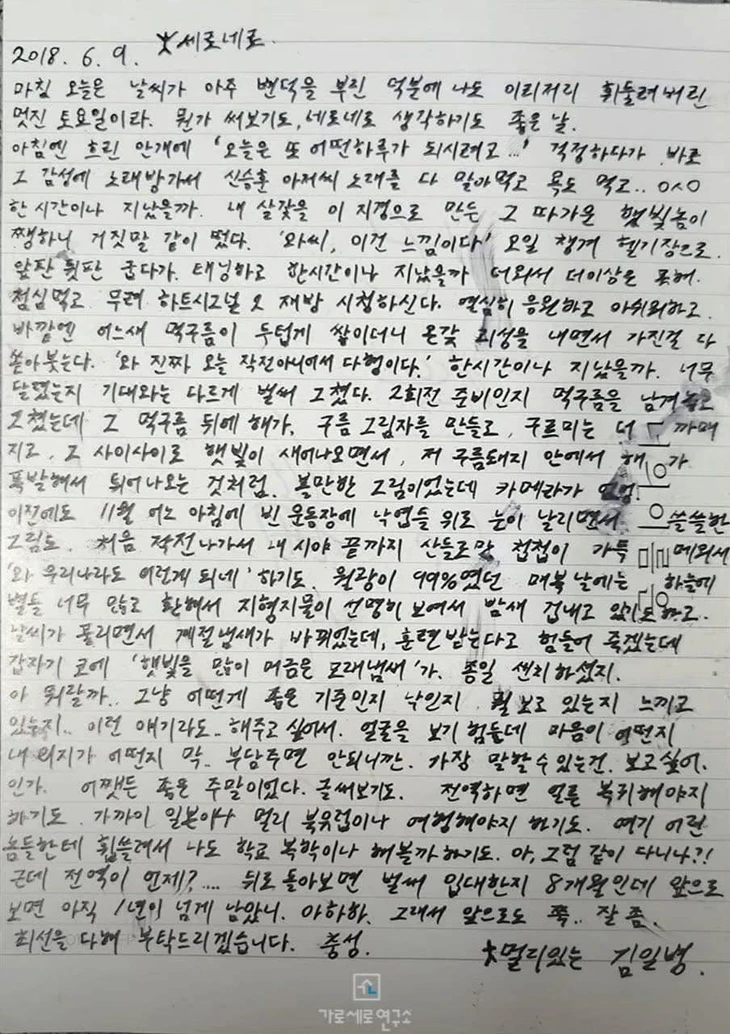 2018. 6. 9. ★세로네로.
마침 오늘은 날씨가 아주 변덕을 부린 덕분에 나도 이리저리 휘둘려버린
멋진 토요일이라. 뭔가 써보기도, 네로네로 생각하기도 좋은 날.
아침엔 흐린 안개에 '오늘은 또 어떤하루가 되시려고...' 걱정하다가 바로
그 감성에 노래방가서 신승훈 아저씨 노래를 다 말아먹고 욕도 먹고.. ㅇㅅㅇ
한시간이나 지났을까. 내 살갗을 이 지경으로 만든 그 따가운 햇빛놈이
쨍하니 거짓말 같이 떴다. '와씨, 이건 느낌이다' 오일 챙겨 헬기장으로.
앞판 뒷판 굽다가. 태닝하고 한시간이나 지났을까 더워서 더이상은 포해.
점심먹고 무려 하트시그널 2 재방 시청하신다. 열심히 응원하고 아쉬워하고.
바깥엔 어느새 먹구름이 두텁게 쌓이더니 온갖 괴성을 내면서 가진걸 다
쏟아붓는다. '와 진짜 오늘 작전아니어서 다행이다.' 한시간이나 지났을까. 너무
달랬는지 기대와는 다르게 벌써 그쳤다. 2회전 준비인지 먹구름을 남겨놓고
그쳤는데 그 먹구름 뒤에 해가. 구름 그림자를 만들고, 구르미는 더 까매
지고, 그 사이사이로 햇빛이 새어나오면서, 저 구름돼지 안에서 해가
폭발해서 튀어나오는 것처럼. 볼만한 그림이었는데 카메라가
이전에도 11월 어느 아침에 빈 운동장에 낙엽들 위로 눈이 날리면서 쓸쓸한
그림도. 처음 작전나가서 내 시야 끝까지 산들로막 첩첩이 가득 메워서
'와 우리나라도 이런게 되네' 하기도. 월광이 99%였던 매복 날에는 하늘에
별들 너무 많고 환해서 지형지물이 선명히 보여서 밤새 겁내고 있기도하고.
날씨가 풀리면서 계절냄새가 바뀌었는데, 훈련받는다고 힘들어 죽겠는데
갑자기 코에 '햇빛을 많이 머금은 모래냄새'가. 종일 센치하셨지.
아 뭐랄까.. 그냥 어떤게 좋은 기준인지 낙인지 뭘 보고 있는지 느끼고
있는지.. 이런 얘기라도.. 해주고 싶어서. 얼굴을 보기 힘들데 마음이 어떤지
내 의지가 어떤지 막.. 부담주면 안되니깐. 가장 말할수있는건. 보고싶어.
인가. 어쨋든 좋은 주말이었다. 글써보기도. 전역하면 얼른 복귀해야지
하기도. 가까이 일본이나 멀리 북유럽이나 여행해야지 하기도. 여기 어린
놈들한테 휩쓸려서 나도 학교 복학이나 해볼까하기도. 아, 그럼 같이 다니나?!
근데 전역이 언제?.... 뒤로 돌아보면 벌써 입대한지 8개월인데 앞으로
보면 아직 1년이 넘게 남았니. 아하하. 그래서 앞으로도 쭉.. 잘 좀.
최선을 다해 부탁드리겠습니다. 충성.
★멀리있는 김일병.
가로세로연구소